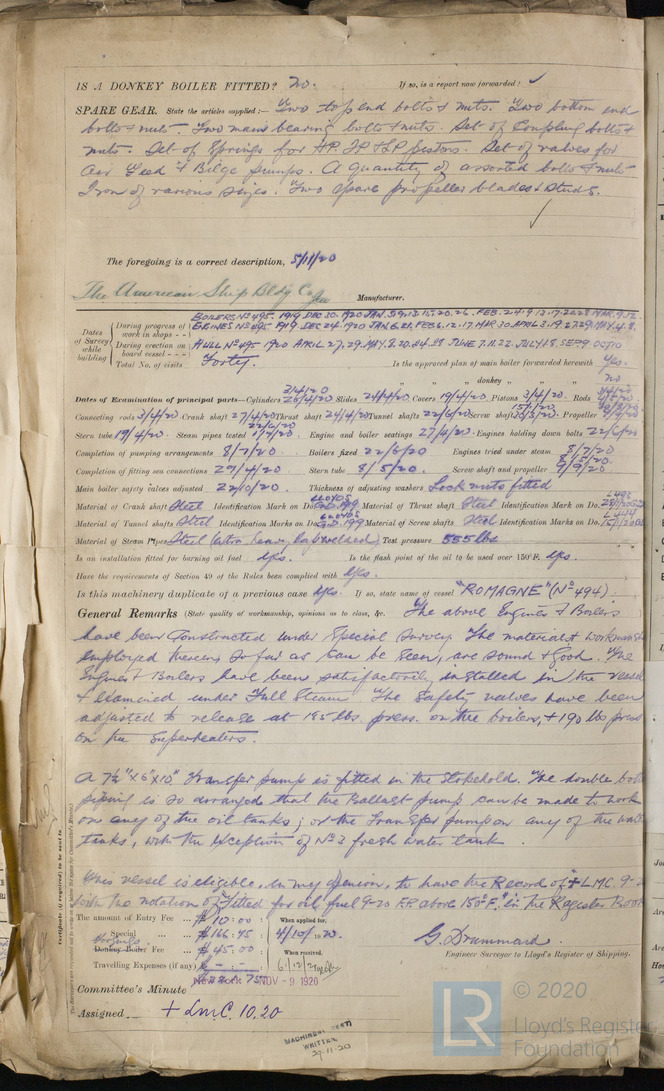 IS A DONKEY BOILER FITTED? No. If so, is a report now forwarded? ✓
SPARE GEAR. State the articles supplied:— Two top end bolts & nuts. Two bottom end
bolts & nuts. Two main bearing bolts & nuts. Set of Coupling bolts &
nuts. Set of Springs for HP IP & LP pistons. Set of valves for
Air Feed & Bilge pumps. A quantity of assorted bolts & nuts
Iron of various sizes. Two spare propeller blades & studs.
The foregoing is a correct description, 5/11/20
The American Ship Bldg Co Manufacturer.
Dates of Survey while building
During progress of work in shops - - BOILERS Nº 495. 1919 DEC 30. 1920 JAN. 5.9.13.15.20.26. FEB. 2.4.9.13.17.20.28 MAR. 9.12.
ENGINES Nº 495 1919. DEC 24. 1920 JAN 6.21. FEB 6.12.17 MAR 30. APRIL 3.19.27.29. MAY 4.8.
During erection on board vessel - - - HULL Nº 495 1920 APRIL 27.29. MAY 8.20. JUNE 7.11.22. JULY 1.8. SEP 9.
Total No. of visits Forty. Is the approved plan of main boiler forwarded herewith Yes.
" " " donkey " " " no
Dates of Examination of principal parts—Cylinders 3/4/20 26/4/20 Slides 24/4/20 Covers 19/4/20 Pistons 3/4/20 Rods
Connecting rods 3/4/20. Crank shaft 27/4/20 Thrust shaft 24/4/20 Tunnel shafts 22/6/20 Screw shaft Propeller
Stern tube 19/4/20. Steam pipes tested Engine and boiler seatings 27/4/20. Engines holding down bolts 22/6/20
Completion of pumping arrangements 8/7/20 Boilers fixed 22/6/20 Engines tried under steam 8/7/20
Completion of fitting sea connections 29/4/20 Stern tube 8/5/20. Screw shaft and propeller 9/9/20
Main boiler safety valves adjusted 22/10/20 Thickness of adjusting washers Lock nuts fitted
Material of Crank shaft Steel Identification Mark on Do. LLOYDS Material of Thrust shaft Steel Identification Mark on Do.
Material of Tunnel shafts Steel Identification Marks on Do. LLOYDS Material of Screw shafts Steel Identification Marks on Do.
Material of Steam Pipes Steel (extra heavy, lap welded) Test pressure 555 lbs
Is an installation fitted for burning oil fuel Yes. Is the flash point of the oil to be used over 150°F. Yes.
Have the requirements of Section 49 of the Rules been complied with Yes.
Is this machinery duplicate of a previous case Yes. If so, state name of vessel "ROMAGNE" (Nº 494).
General Remarks (State quality of workmanship, opinions as to class, &c. The above Engines & Boilers
have been Constructed under Special Survey. The material & workmanship
employed therein, so far as can be seen, are sound & good. The
Engines & Boilers have been satisfactorily installed in the vessel
& examined under Full Steam. The Safety valves have been
adjusted to release at 185 lbs. press. on the boilers, & 190 lbs press
on the superheaters.
A 7½"x6"x10" Transfer pump is fitted in the Stokehold. The double bott
piping is so arranged that the Ballast pump can be made to work
on any of the oil tanks; or the Transfer pump on any of the wat
tanks, with the exception of Nº 3 fresh water tank.
This vessel is eligible, in my opinion, to have the Record of + L.M.C. 9-2
with the notation of "Fitted for oil fuel 9-20 F.P. above 150°F." in the Register Book
The amount of Entry Fee ... $10:00: When applied for,
Special ... $166.75 4/10/1920.
Donkey Boiler Fee ... $45:00: When received,
Travelling Expenses (if any) £ - : - : 6/12/20
G. Drummard.
Engineer Surveyor to Lloyd's Register of Shipping.
Committee's Minute New York NOV - 9 1920
Assigned + L.M.C. 10.20
MACHINERY CERT
WRITTEN
29-11-20
LR
© 2020
Lloyd's Register
Foundation